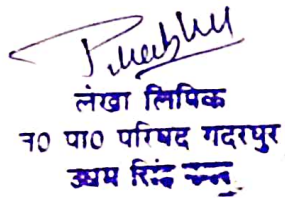 लेखा लिपिक
न० पा० परिषद गदरपुर
उधम सिंह नगर